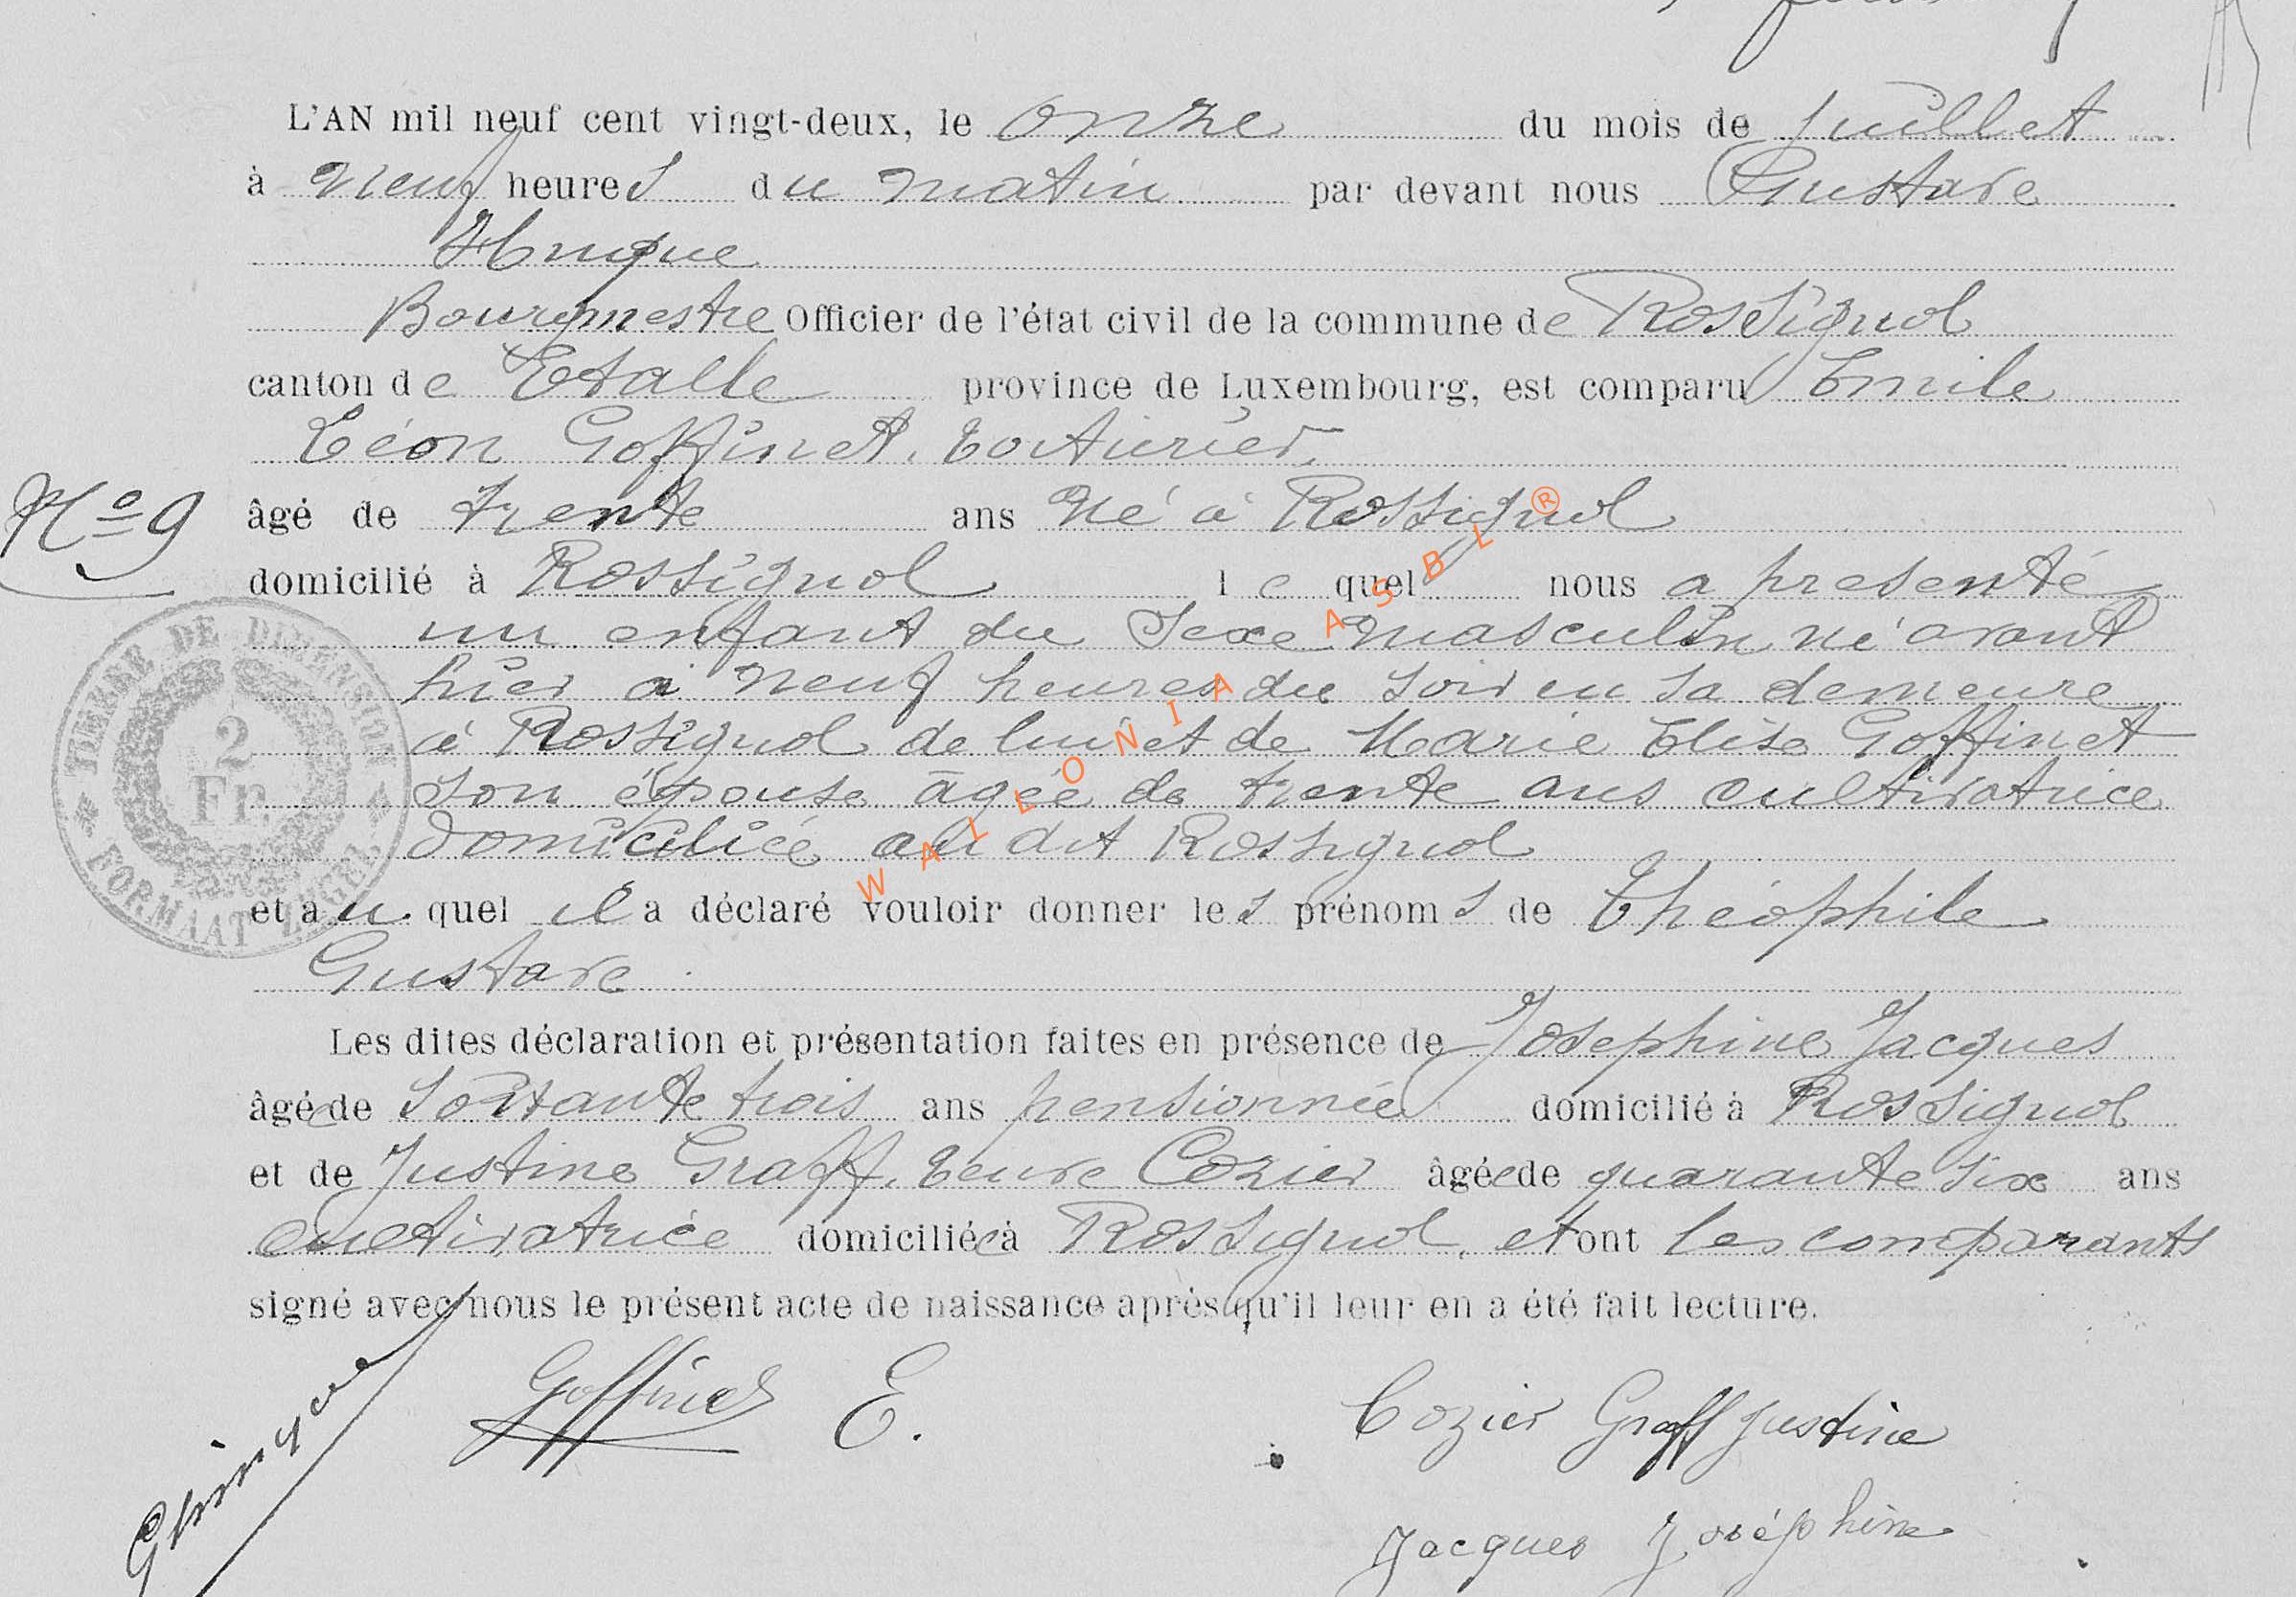 L'AN mil neuf cent vingt-deux, le onze du mois de Juillet
à neuf heures du matin par devant nous Gustave
Hinque
Bourgmestre Officier de l'état civil de la commune de Rossignol
canton de Etalle province de Luxembourg, est comparu Emile
Léon Goffinet,
N° 9
âgé de trente ans né à Rossignol
domicilié à Rossignol lequel nous a presenté
un enfant du Sexe masculin né avant
hier à neuf heures du soir en sa demeure
à Rossignol de lui et de Marie Elise Goffinet
son épouse âgée de trente ans cultivatrice
domiciliée au dit Rossignol
et au quel il a déclaré vouloir donner les prénoms de Théophile
Gustave
Les dites déclaration et présentation faites en présence de Josephine Jacques
âgée de soixante trois ans pensionnée domicilié à Rossignol
et de Justine Graff, veuve Cozier âgée de quarante six ans
cultivatrice domiciliée à Rossignol, et ont les comparants
signé avec nous le présent acte de naissance après qu'il leur en a été fait lecture.
Goffinet E.
Cozier Graff Justine
Jacques Joséphine
TIMBRE DE DIMENSION
2
Fr.
FORMAAT ZEGEL
WALLONIA ASBL ®